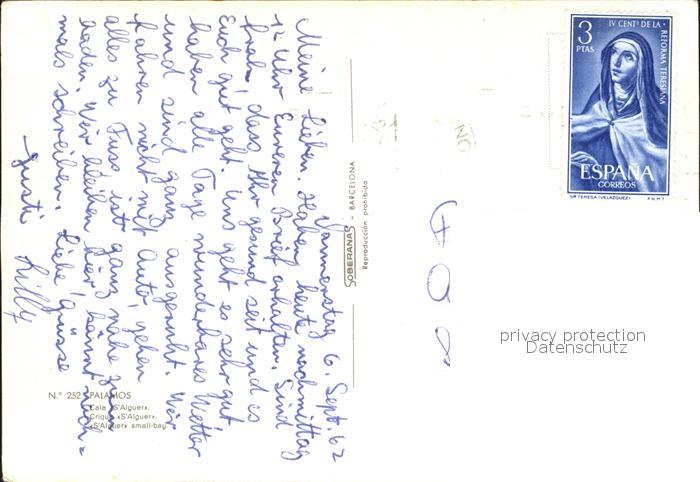 Donnerstag 6. Sept. 62
Meine Lieben. Haben heute nachmittag
12 Uhr Eueren Brief erhalten. Sind
froh, dass Ihr gesund seit und es
Euch gut geht. Uns geht es sehr gut
haben alle Tage wunderbares Wetter
und sind ganz ausgeruht. Wir
fahren nicht mit Auto, gehen
alles zu Fuss ist ganz nahe zum
baden. Wir bleiben hier, könnt noch-
mals schreiben. Liebe Grüsse
Gusti Lilly
N.º 252 - PALAMOS
Cala «S'Alguer».
Crique «S'Alguer».
«S'Alguer» small-bay
SOBERANAS - BARCELONA
Reproducción prohibida
3
PTAS
IV CENTº DE LA
REFORMA TERESIANA
ESPAÑA
CORREOS
STA TERESA (VELAZQUEZ)
F.N.M.T.
privacy protection
Datenschutz